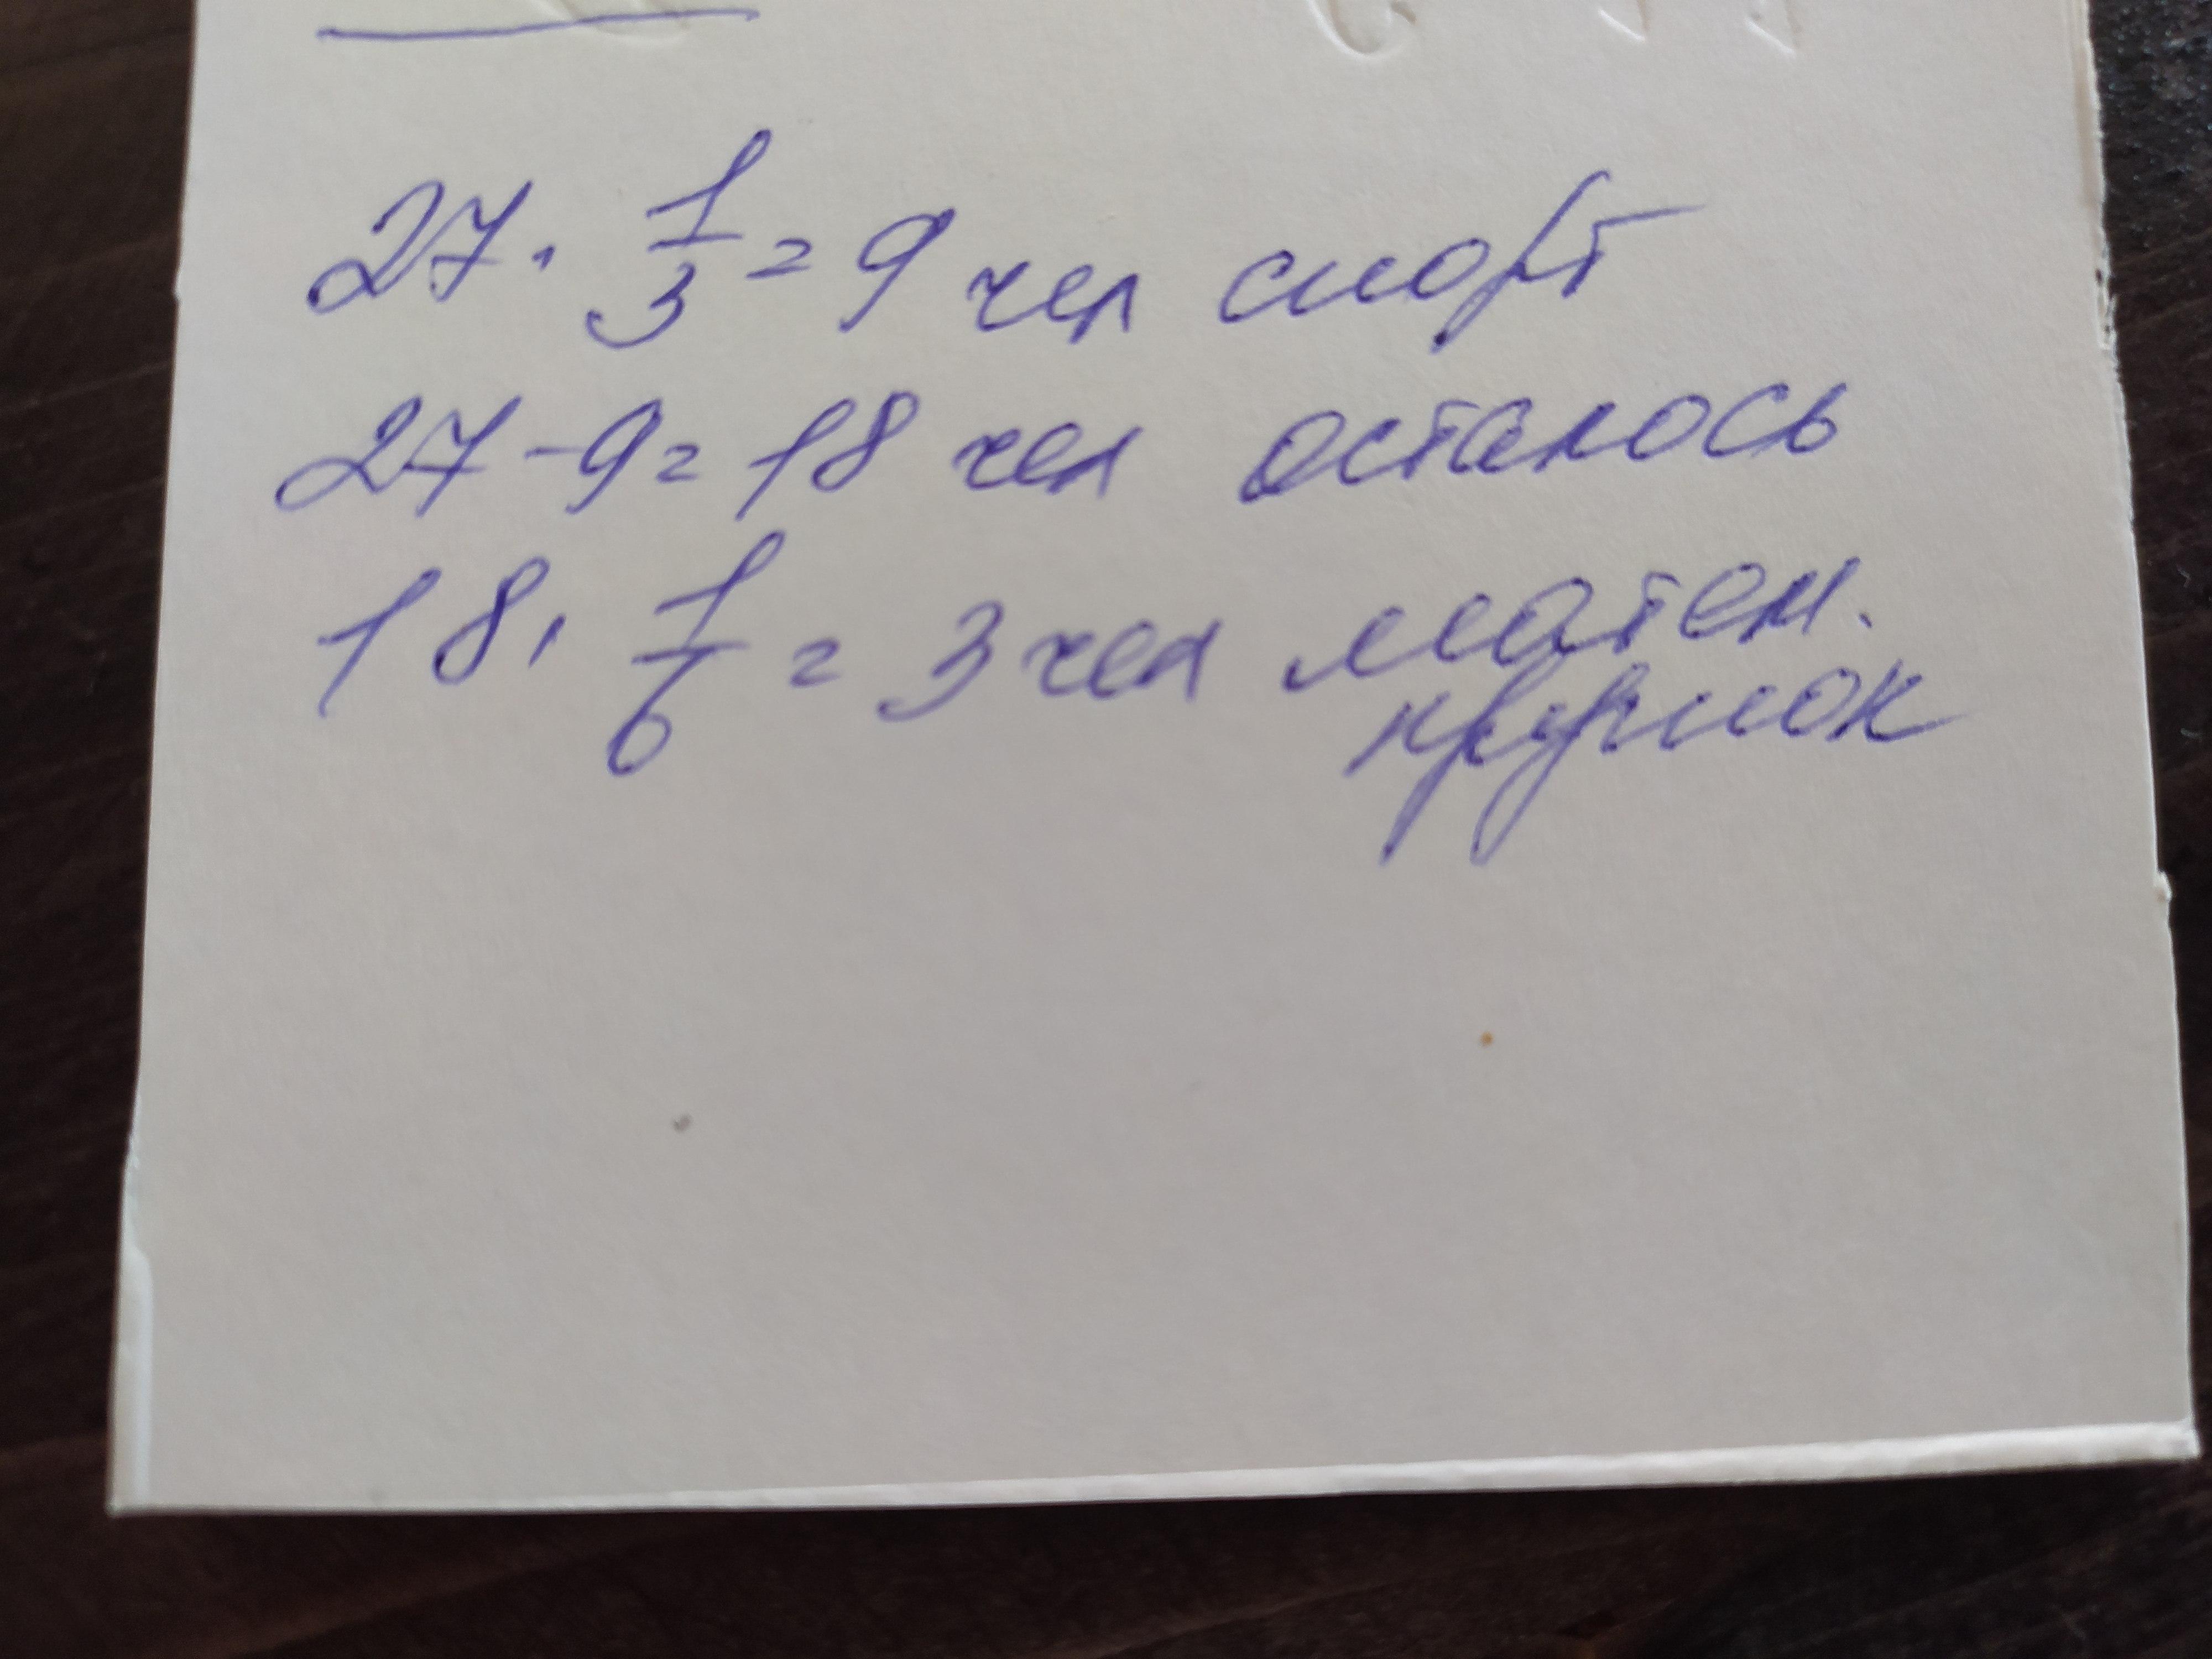 27 · 1/3 = 9 чел спорт
27 - 9 = 18 чел осталось
18 · 1/6 = 3 чел матем.
кружок